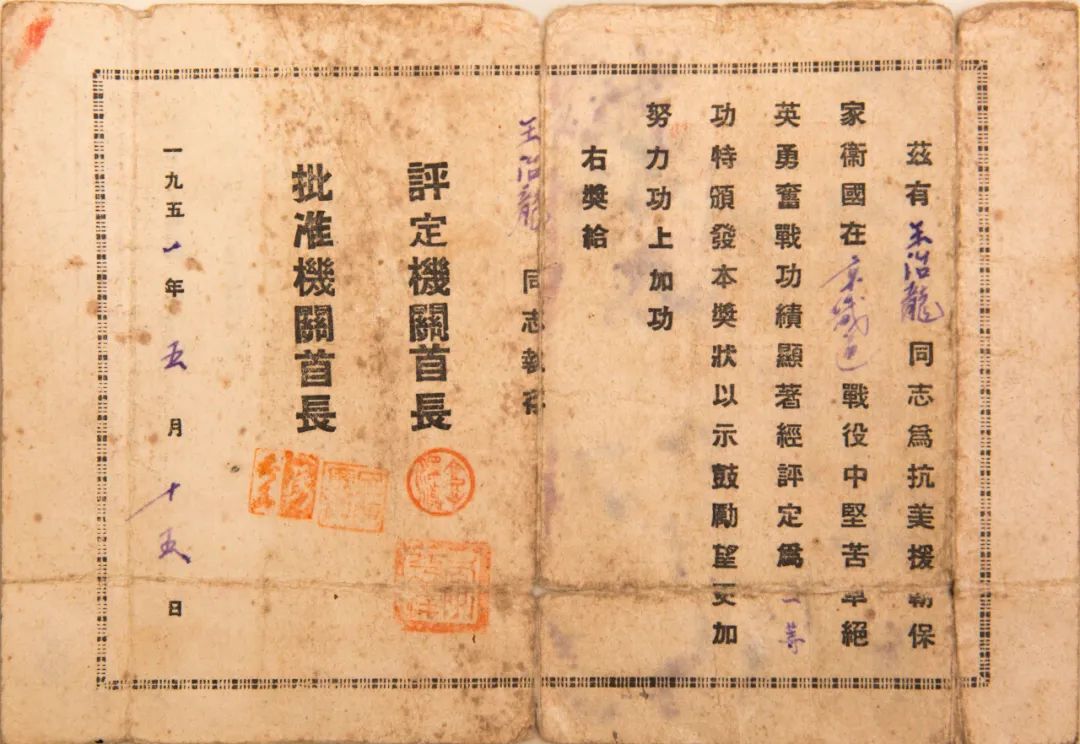 茲有王治龍同志爲抗美援朝保
家衞國在京畿道戰役中堅苦卓絕
英勇奮戰功績顯著經評定爲一等
功特頒發本奬狀以示鼓勵望更加
努力功上加功
右奬給
王治龍同志執存
評定機關首長
批准機關首長
一九五一年五月十五日